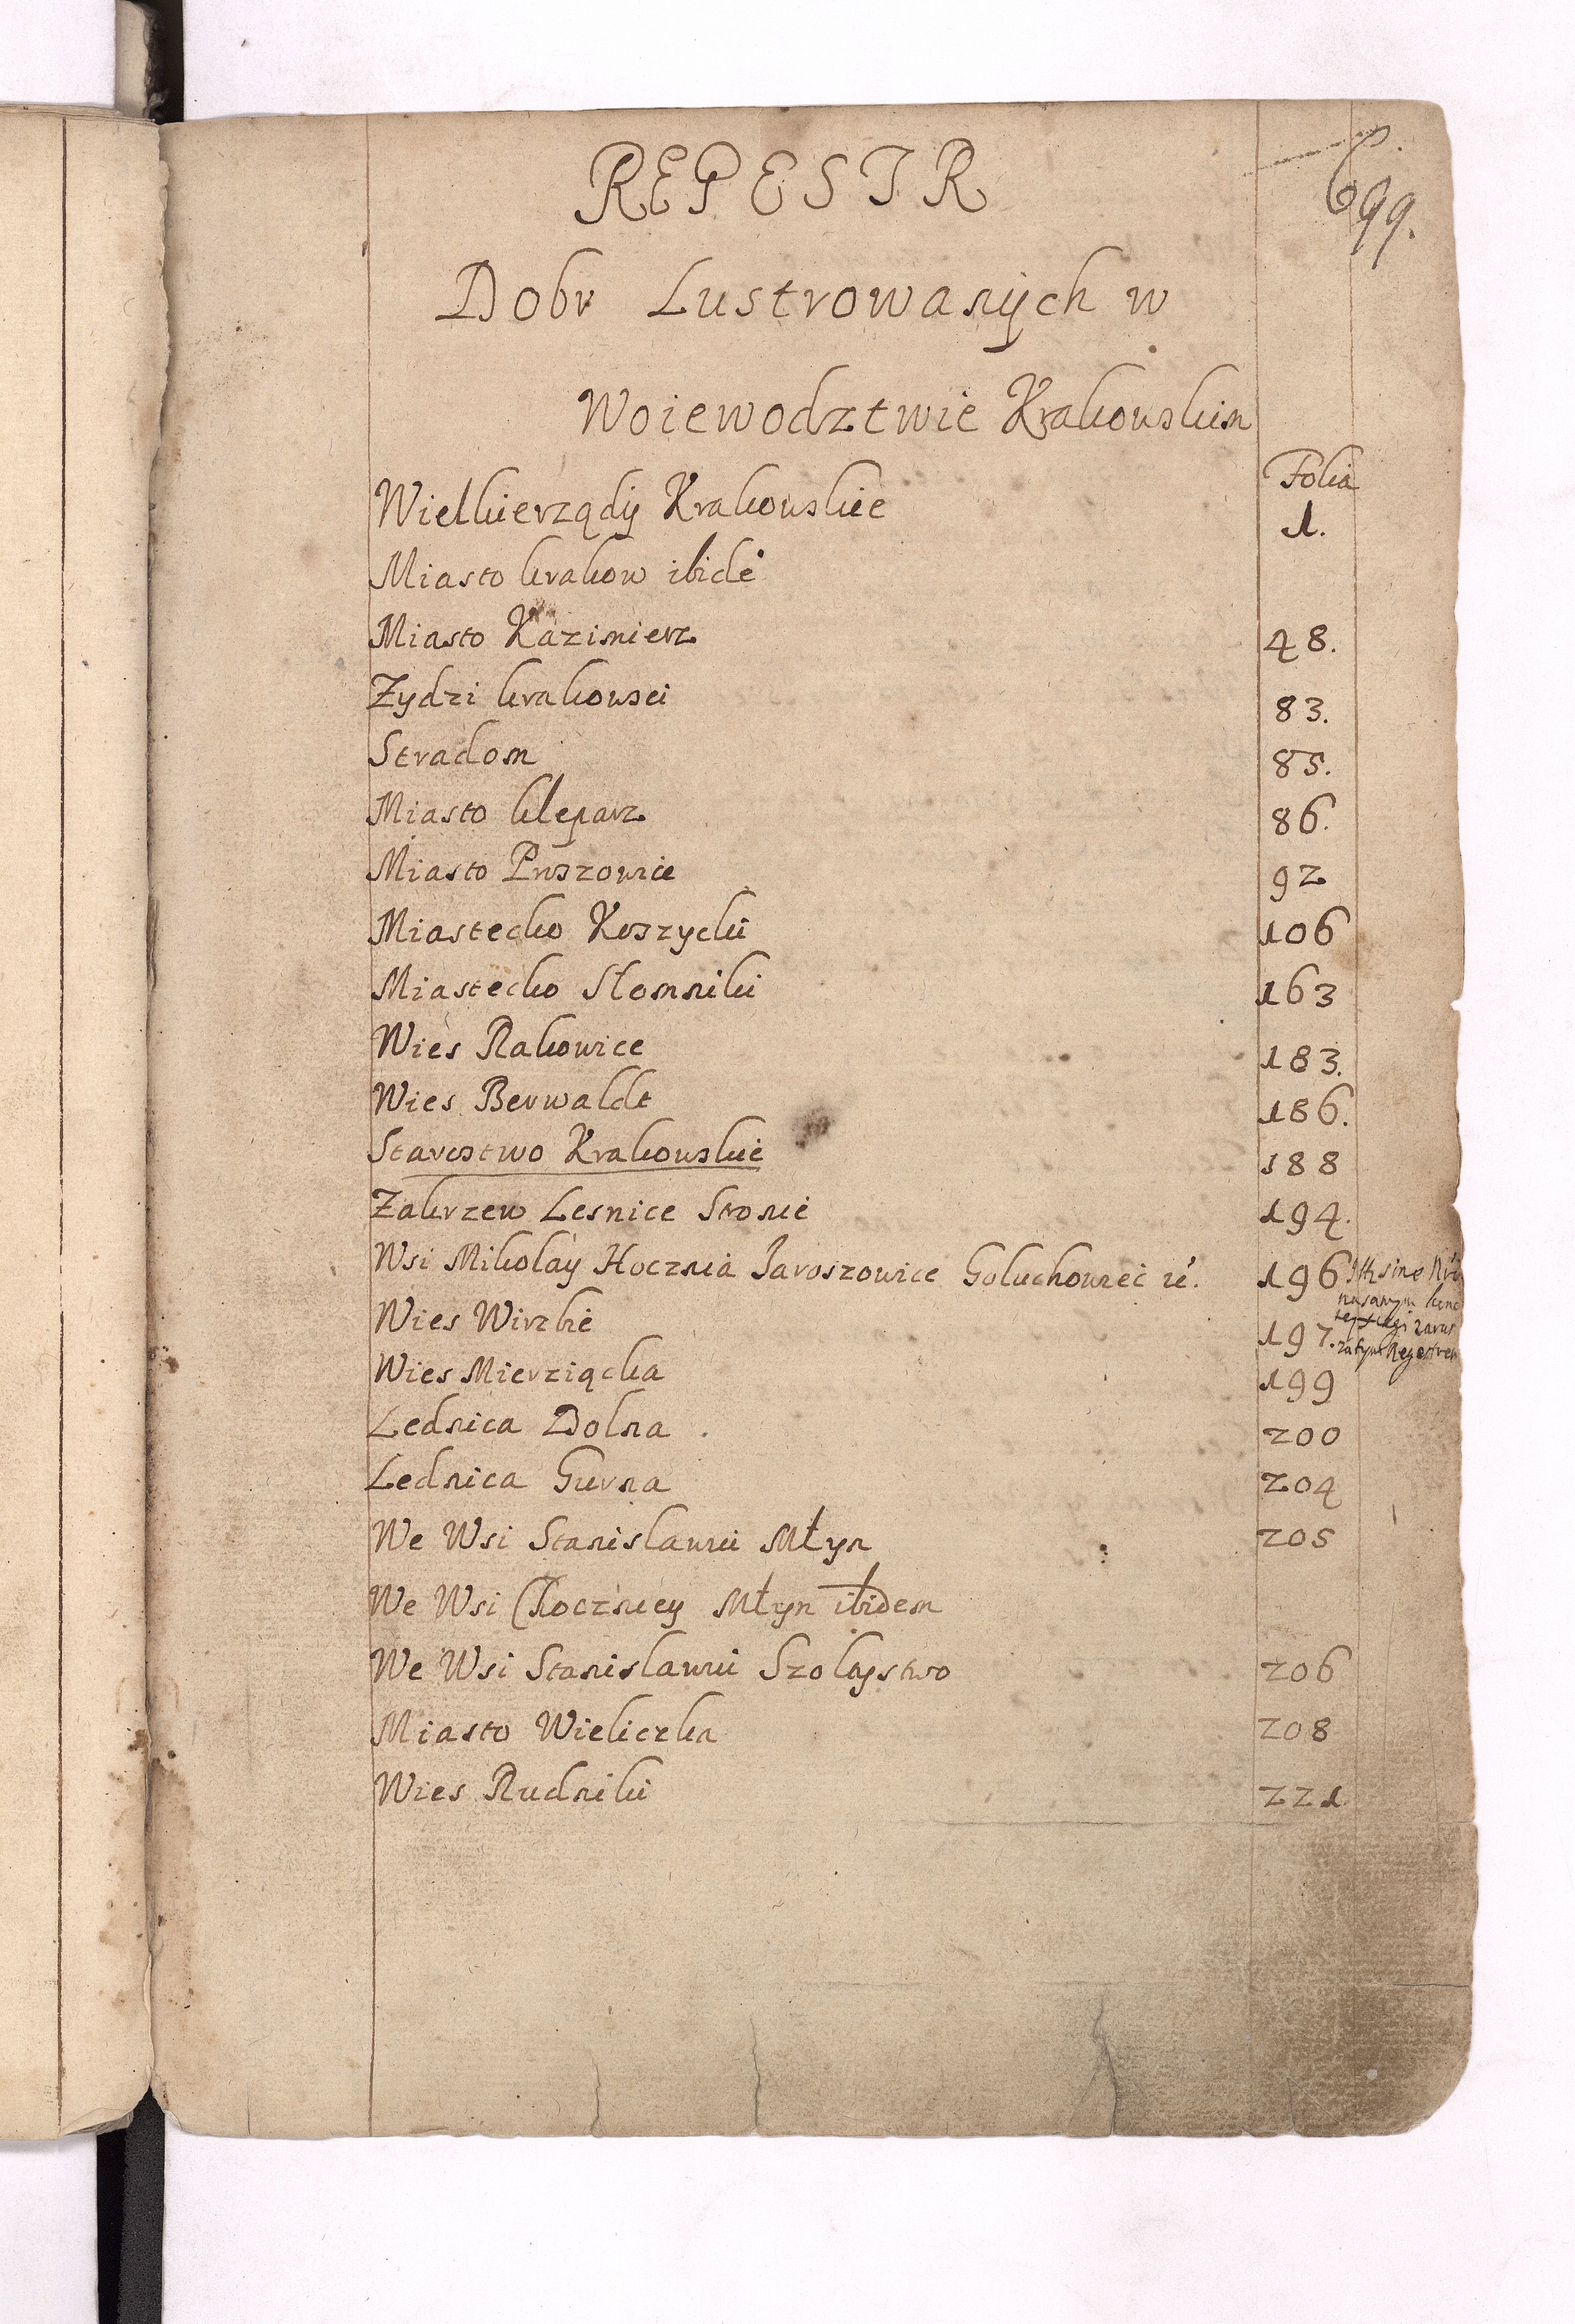 699.
REPESTR
Dobr Lustrowanÿch w
Woiewodztwie Krakowskim
Folia
Wielkierządÿ Krakowskie 1.
Miasto krakow ibidē
Miasto Kazimierz 48.
Zydzi krakowsci 83.
Stradom 85.
Miasto kleparz 86.
Miasto Proszowice 92
Miastecko Koszycki 106
Miastecko Słomniki 163
Wies Rakowice 183.
Wies Berwaldt 186.
Starostwo Krakowskie 188
Zakrzew Lesnice Stonie 194.
Wsi Mikolaÿ Hocznia Jaroszowice Goluchowiec 196
Wies Wirzbie 197.
Wies Mierziącka 199
Lednica Dolna 200
Lednica Gurna 204
We Wsi Stanislawiu Młyn 205
We Wsi Choczniey Młyn ibidem
We Wsi Stanislawiu Szoltystwo 206
Miasto Wieliczka 208
Wies Rudniki 221.